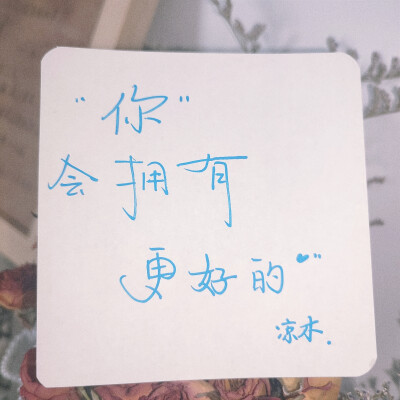 “你”
会拥有
更好的”
凉木.